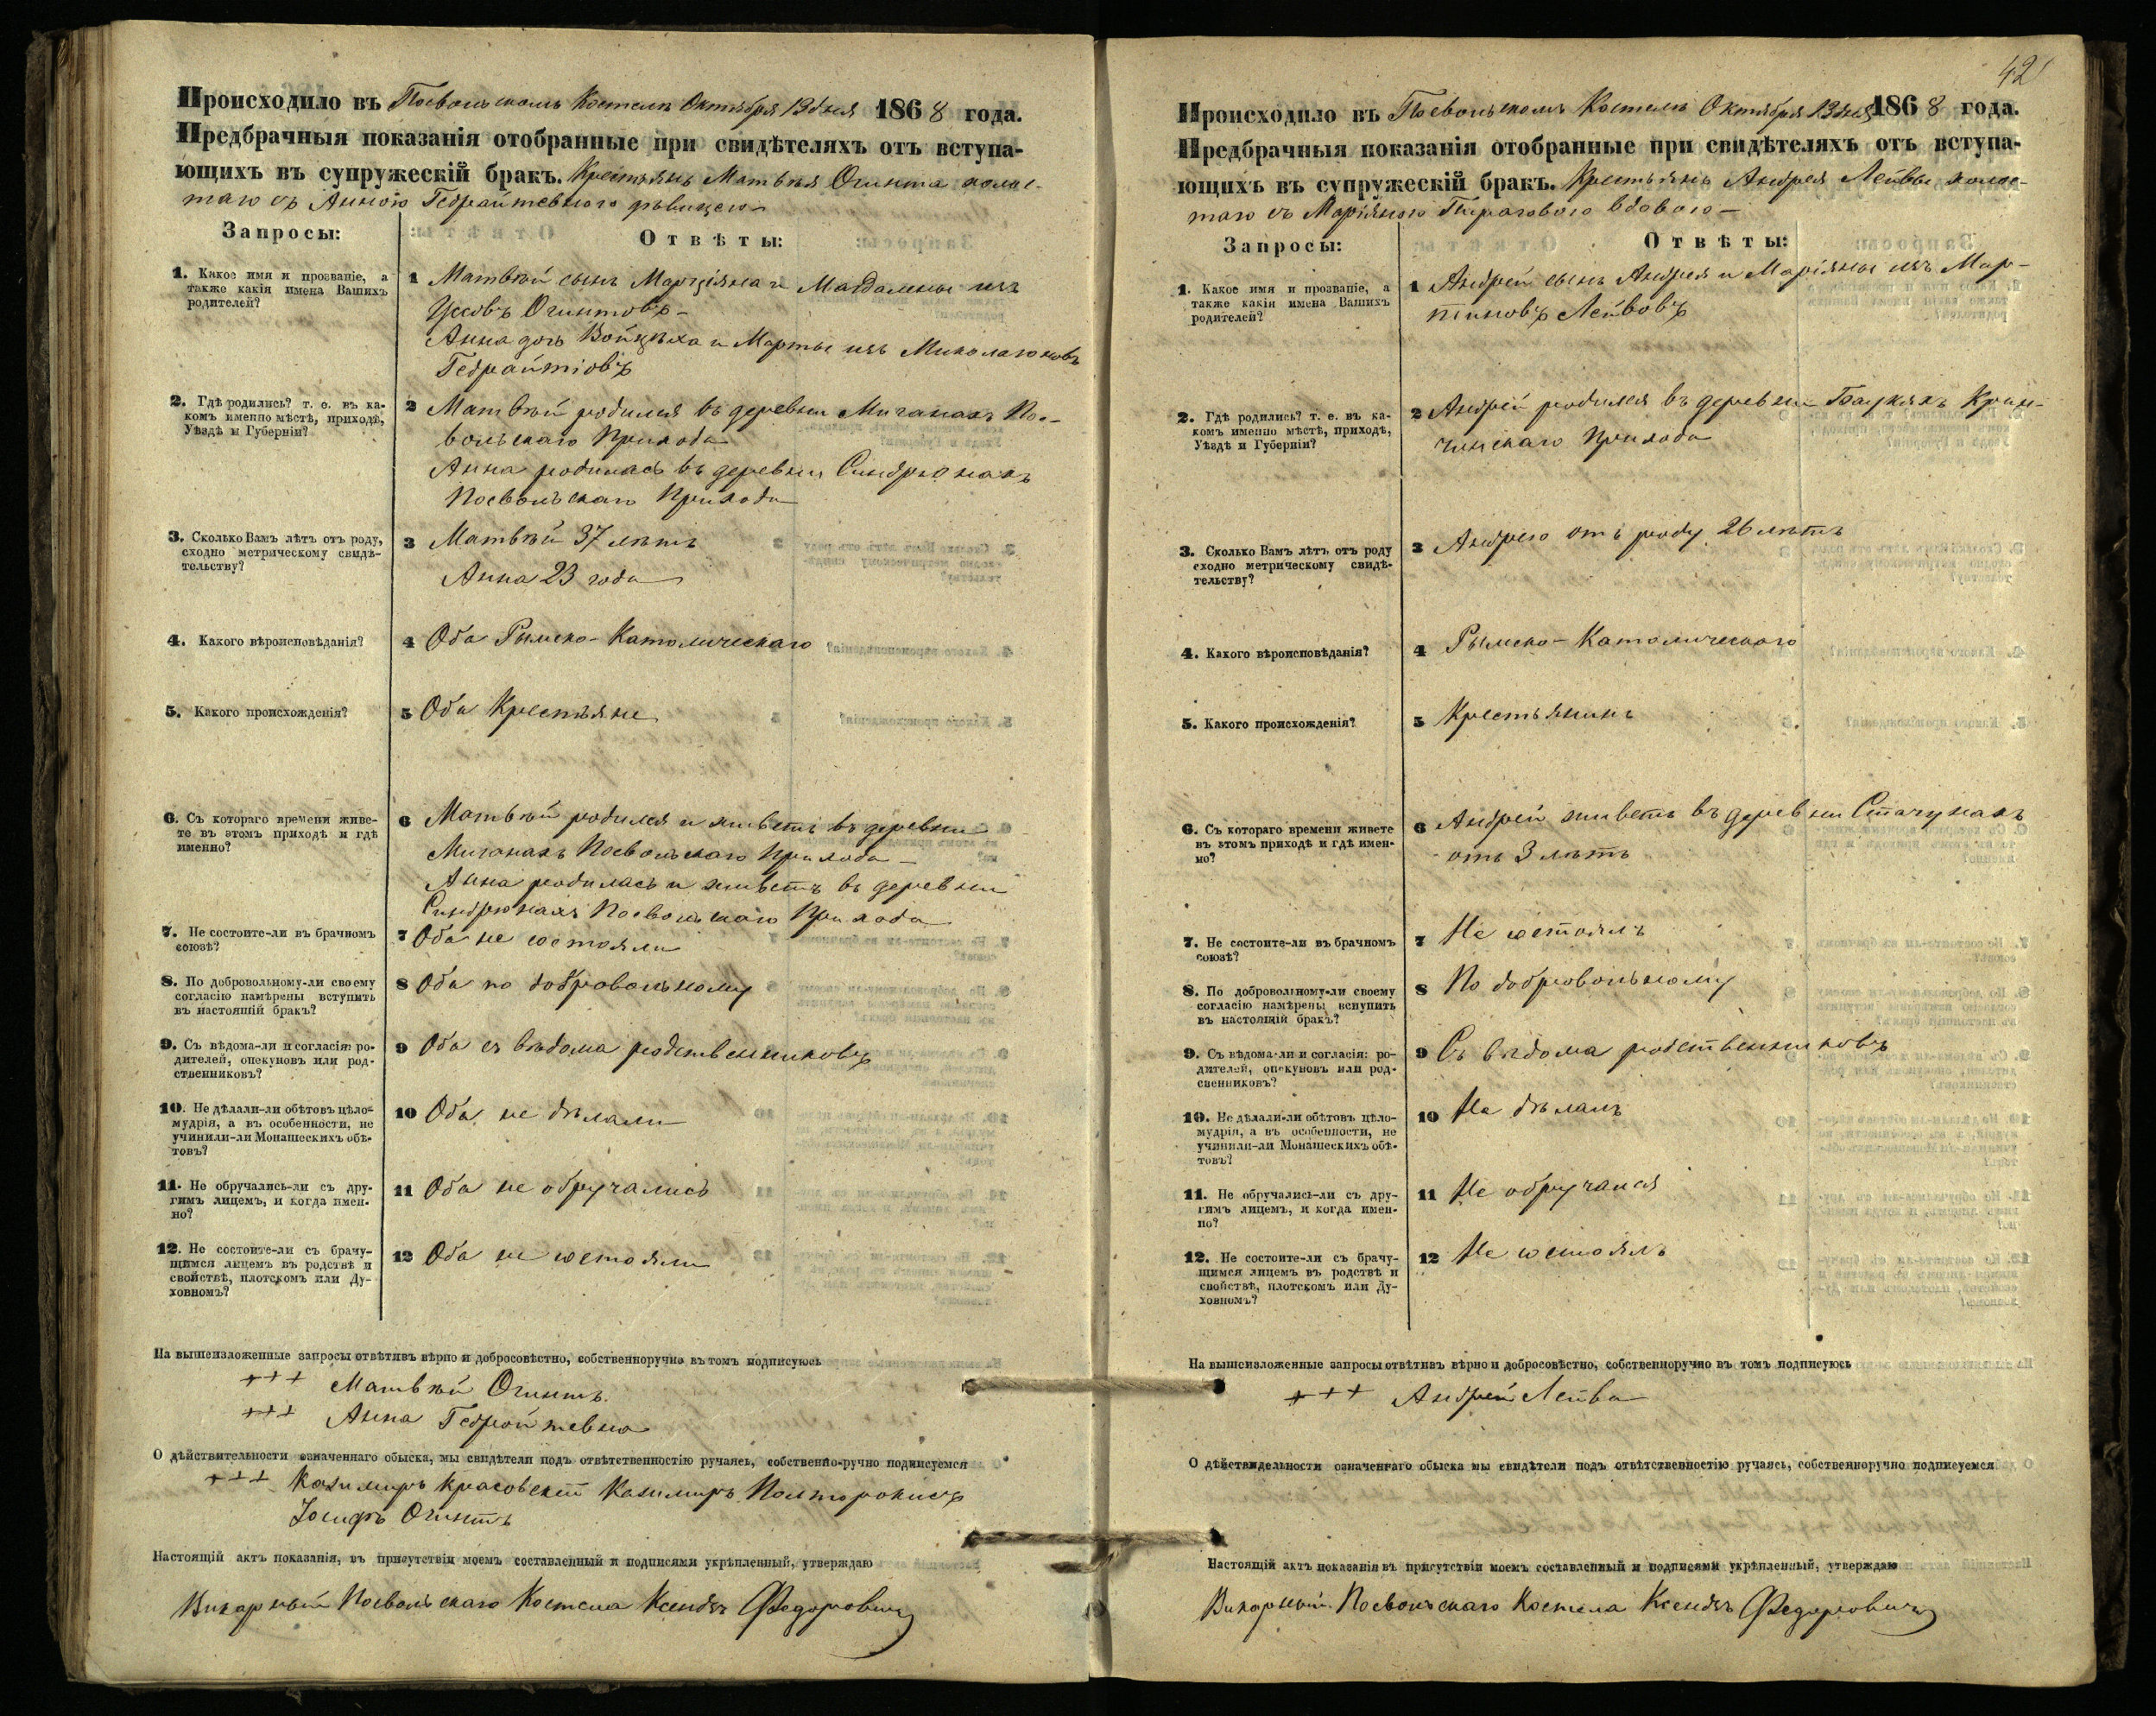 Происходило въ Посвольскомъ Костелѣ Октября 13 дня 1868 года.
Предбрачныя показанія отобранные при свидѣтеляхъ отъ вступа-
ющихъ въ супружескій бракъ. Крестьянъ Матвѣя Огинта холос-
таго съ Анною Гедрайтевною дѣвицею
Запросы: Отвѣты:
1. Какое имя и прозваніе, а
также какія имена Вашихъ
родителей?
1 Матвѣй сынъ Марціяна и Магдалены изъ
Огинтовъ
Анна дочь Войцѣха и Марты изъ
Гедрайтювъ
2. Гдѣ родились? т. е. въ ка-
комъ именно мѣстѣ, приходѣ,
Уѣздѣ и Губерніи?
2 Матвѣй родился въ деревни Мичанахъ По-
вольскаго Прихода
Анна родилась въ деревни Синдрюнахъ
Посвольскаго Прихода
3. Сколько Вамъ лѣтъ отъ роду,
сходно метрическому свидѣ-
тельству?
3 Матвѣй 37 лѣтъ
Анна 23 года
4. Какого вѣроисповѣданія?
4 Оба Рымско-Католическаго
5. Какого происхожденія?
5 Оба Крестьяне
6. Съ котораго времени живе-
те въ этомъ приходѣ и гдѣ
именно?
6 Матвѣй родился и живетъ въ деревни
Мичанахъ Посвольскаго Прихода
Анна родилась и живетъ въ деревни
Синдрюнахъ Посвольскаго Прихода
7. Не состоите-ли въ брачномъ
союзѣ?
7 Оба не состояли
8. По добровольному-ли своему
согласію намѣрены вступить
въ настоящій бракъ?
8 Оба по добровольному
9. Съ вѣдома-ли и согласія: ро-
дителей, опекуновъ или род-
ственниковъ?
9 Оба съ вѣдома родственниковъ
10. Не дѣлали-ли обѣтовъ цѣло-
мудрія, а въ особенности, не
учинили-ли Монашескихъ обѣ-
товъ?
10 Оба не дѣлали
11. Не обручались-ли съ дру-
гимъ лицемъ, и когда имен-
но?
11 Оба не обручались
12. Не состоите-ли съ брачу-
щимся лицемъ въ родствѣ и
свойствѣ, плотскомъ или Ду-
ховномъ?
12 Оба не состояли
На вышеизложенные запросы отвѣтивъ вѣрно и добросовѣстно, собственноручно въ томъ подписуюсь
+++ Матвѣй Огинтъ.
+++ Анна Гедройтевна
О дѣйствительности означеннаго обыска, мы свидѣтели подъ отвѣтственностію ручаясь, собственно-ручно подписуемся
+++ Казимиръ Красовскій Казимиръ
Іосифъ Огинтъ
Настоящій актъ показанія, въ присутствіи моемъ составленный и подписями укрѣпленный, утверждаю
Викарный Посвольскаго Костела Ксендзъ Федоровичъ
42
Происходило въ Посвольскомъ Костелѣ Октября 13 дня 1868 года.
Предбрачныя показанія отобранные при свидѣтеляхъ отъ вступа-
ющихъ въ супружескій бракъ. Крестьянъ Андрея Лейвы холос-
таго съ Маріяною вдовою
Запросы: Отвѣты:
1. Какое имя и прозваніе, а
также какія имена Вашихъ
родителей?
1 Андрей сынъ Андрея и Маріяны изъ Мар-
тиновъ Лейвовъ
2. Гдѣ родились? т. е. въ ка-
комъ именно мѣстѣ, приходѣ,
Уѣздѣ и Губерніи?
2 Андрей родился въ деревни Крин-
чинскаго Прихода
3. Сколько Вамъ лѣтъ отъ роду
сходно метрическому свидѣ-
тельству?
3 Андрею отъ роду 26 лѣтъ
4. Какого вѣроисповѣданія?
4 Рымско-Католическаго
5. Какого происхожденія?
5 Крестьянинъ
6. Съ котораго времени живете
въ этомъ приходѣ и гдѣ имен-
но?
6 Андрей живетъ въ деревни Стачунахъ
отъ 3 лѣтъ
7. Не состоите-ли въ брачномъ
союзѣ?
7 Не состоялъ
8. По добровольному-ли своему
согласію намѣрены вступить
въ настоящій бракъ?
8 По добровольному
9. Съ вѣдома-ли и согласія: ро-
дителей, опекуновъ или род-
свенниковъ?
9 Съ вѣдома родственниковъ
10. Не дѣлали-ли обѣтовъ цѣло-
мудрія, а въ особенности, не
учинили-ли Монашескихъ обѣ-
товъ?
10 Не дѣлалъ
11. Не обручались-ли съ дру-
гимъ лицемъ, и когда имен-
но?
11 Не обручался
12. Не состоите-ли съ брачу-
щимся лицемъ въ родствѣ и
свойствѣ, плотскомъ или Ду-
ховномъ?
12 Не состоялъ
На вышеизложенные запросы отвѣтивъ вѣрно и добросовѣстно, собственноручно въ томъ подписуюсь
+++ Андрей Лейва
О дѣйствидельности означеннаго обыска мы свидѣтели подъ отвѣтственностію ручаясь, собственноручно подписуемся
Настоящій актъ показанія въ присутствіи моемъ составленный и подписями укрѣпленный, утверждаю
Викарный Посвольскаго Костела Ксендзъ Федоровичъ